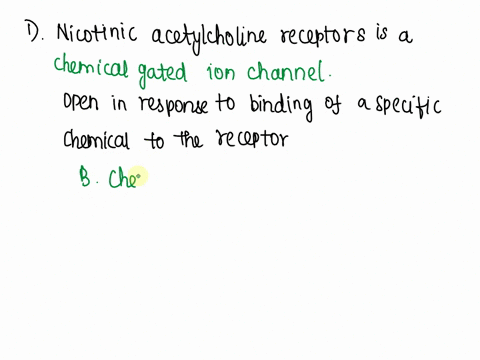 1). Nicotinic acetylcholine receptors is a
chemical gated ion channel.
Open in response to binding of a specific
chemical to the receptor
B. Che